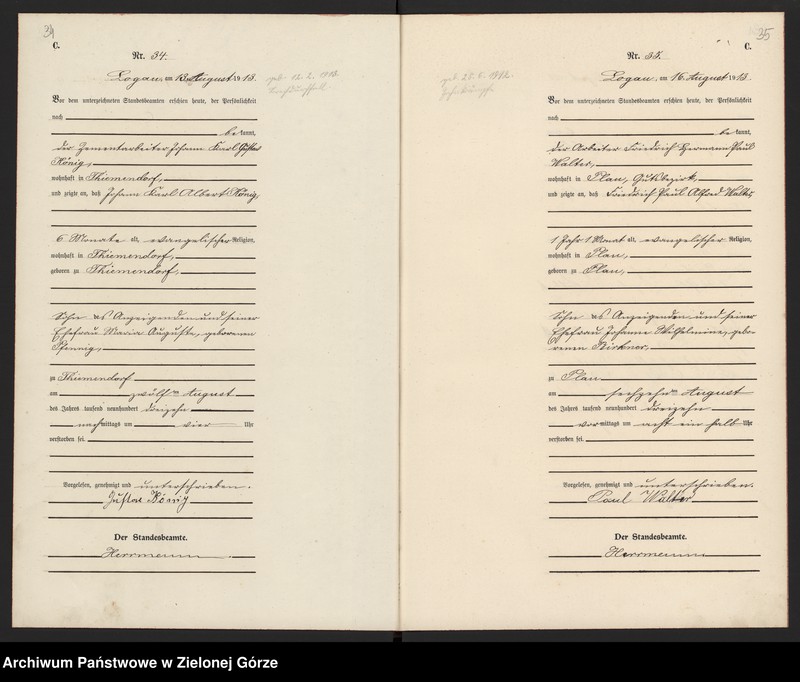 34
C.
Nr. 34.
Logau, am 13. August 1913.
geb. 12. 2. 1913
Vor dem unterzeichneten Standesbeamten erschien heute, der Persönlichkeit
nach
bekannt,
der Zementarbeiter Johann Karl Gustav
König,
wohnhaft in Thiemendorf,
und zeigte an, daß Johann Karl Albert König,
6 Monate alt, evangelischer Religion,
wohnhaft in Thiemendorf,
geboren zu Thiemendorf,
Sohn des Anzeigenden und seiner
Ehefrau Maria Auguste, geborenen
Pfennig,
zu Thiemendorf
am zwölften August
des Jahres tausend neunhundert dreizehn
nachmittags um vier Uhr
verstorben sei.
Vorgelesen, genehmigt und unterschrieben.
Gustav König
Der Standesbeamte.
Herrmann
35
C.
Nr. 35.
Logau, am 16. August 1913.
Vor dem unterzeichneten Standesbeamten erschien heute, der Persönlichkeit
nach
bekannt,
der Arbeiter Friedrich Hermann Paul
Walter,
wohnhaft in Plau, Gutsbezirk,
und zeigte an, daß Friedrich Paul Alfred Walter,
1 Jahr 1 Monat alt, evangelischer Religion,
wohnhaft in Plau,
geboren zu Plau,
Sohn des Anzeigenden und seiner
Ehefrau Johanne Wilhelmine, gebo-
renen Birkner,
zu Plau
am sechzehnten August
des Jahres tausend neunhundert dreizehn
vormittags um acht ein halb Uhr
verstorben sei.
Vorgelesen, genehmigt und unterschrieben.
Paul Walter
Der Standesbeamte.
Herrmann
Archiwum Państwowe w Zielonej Górze